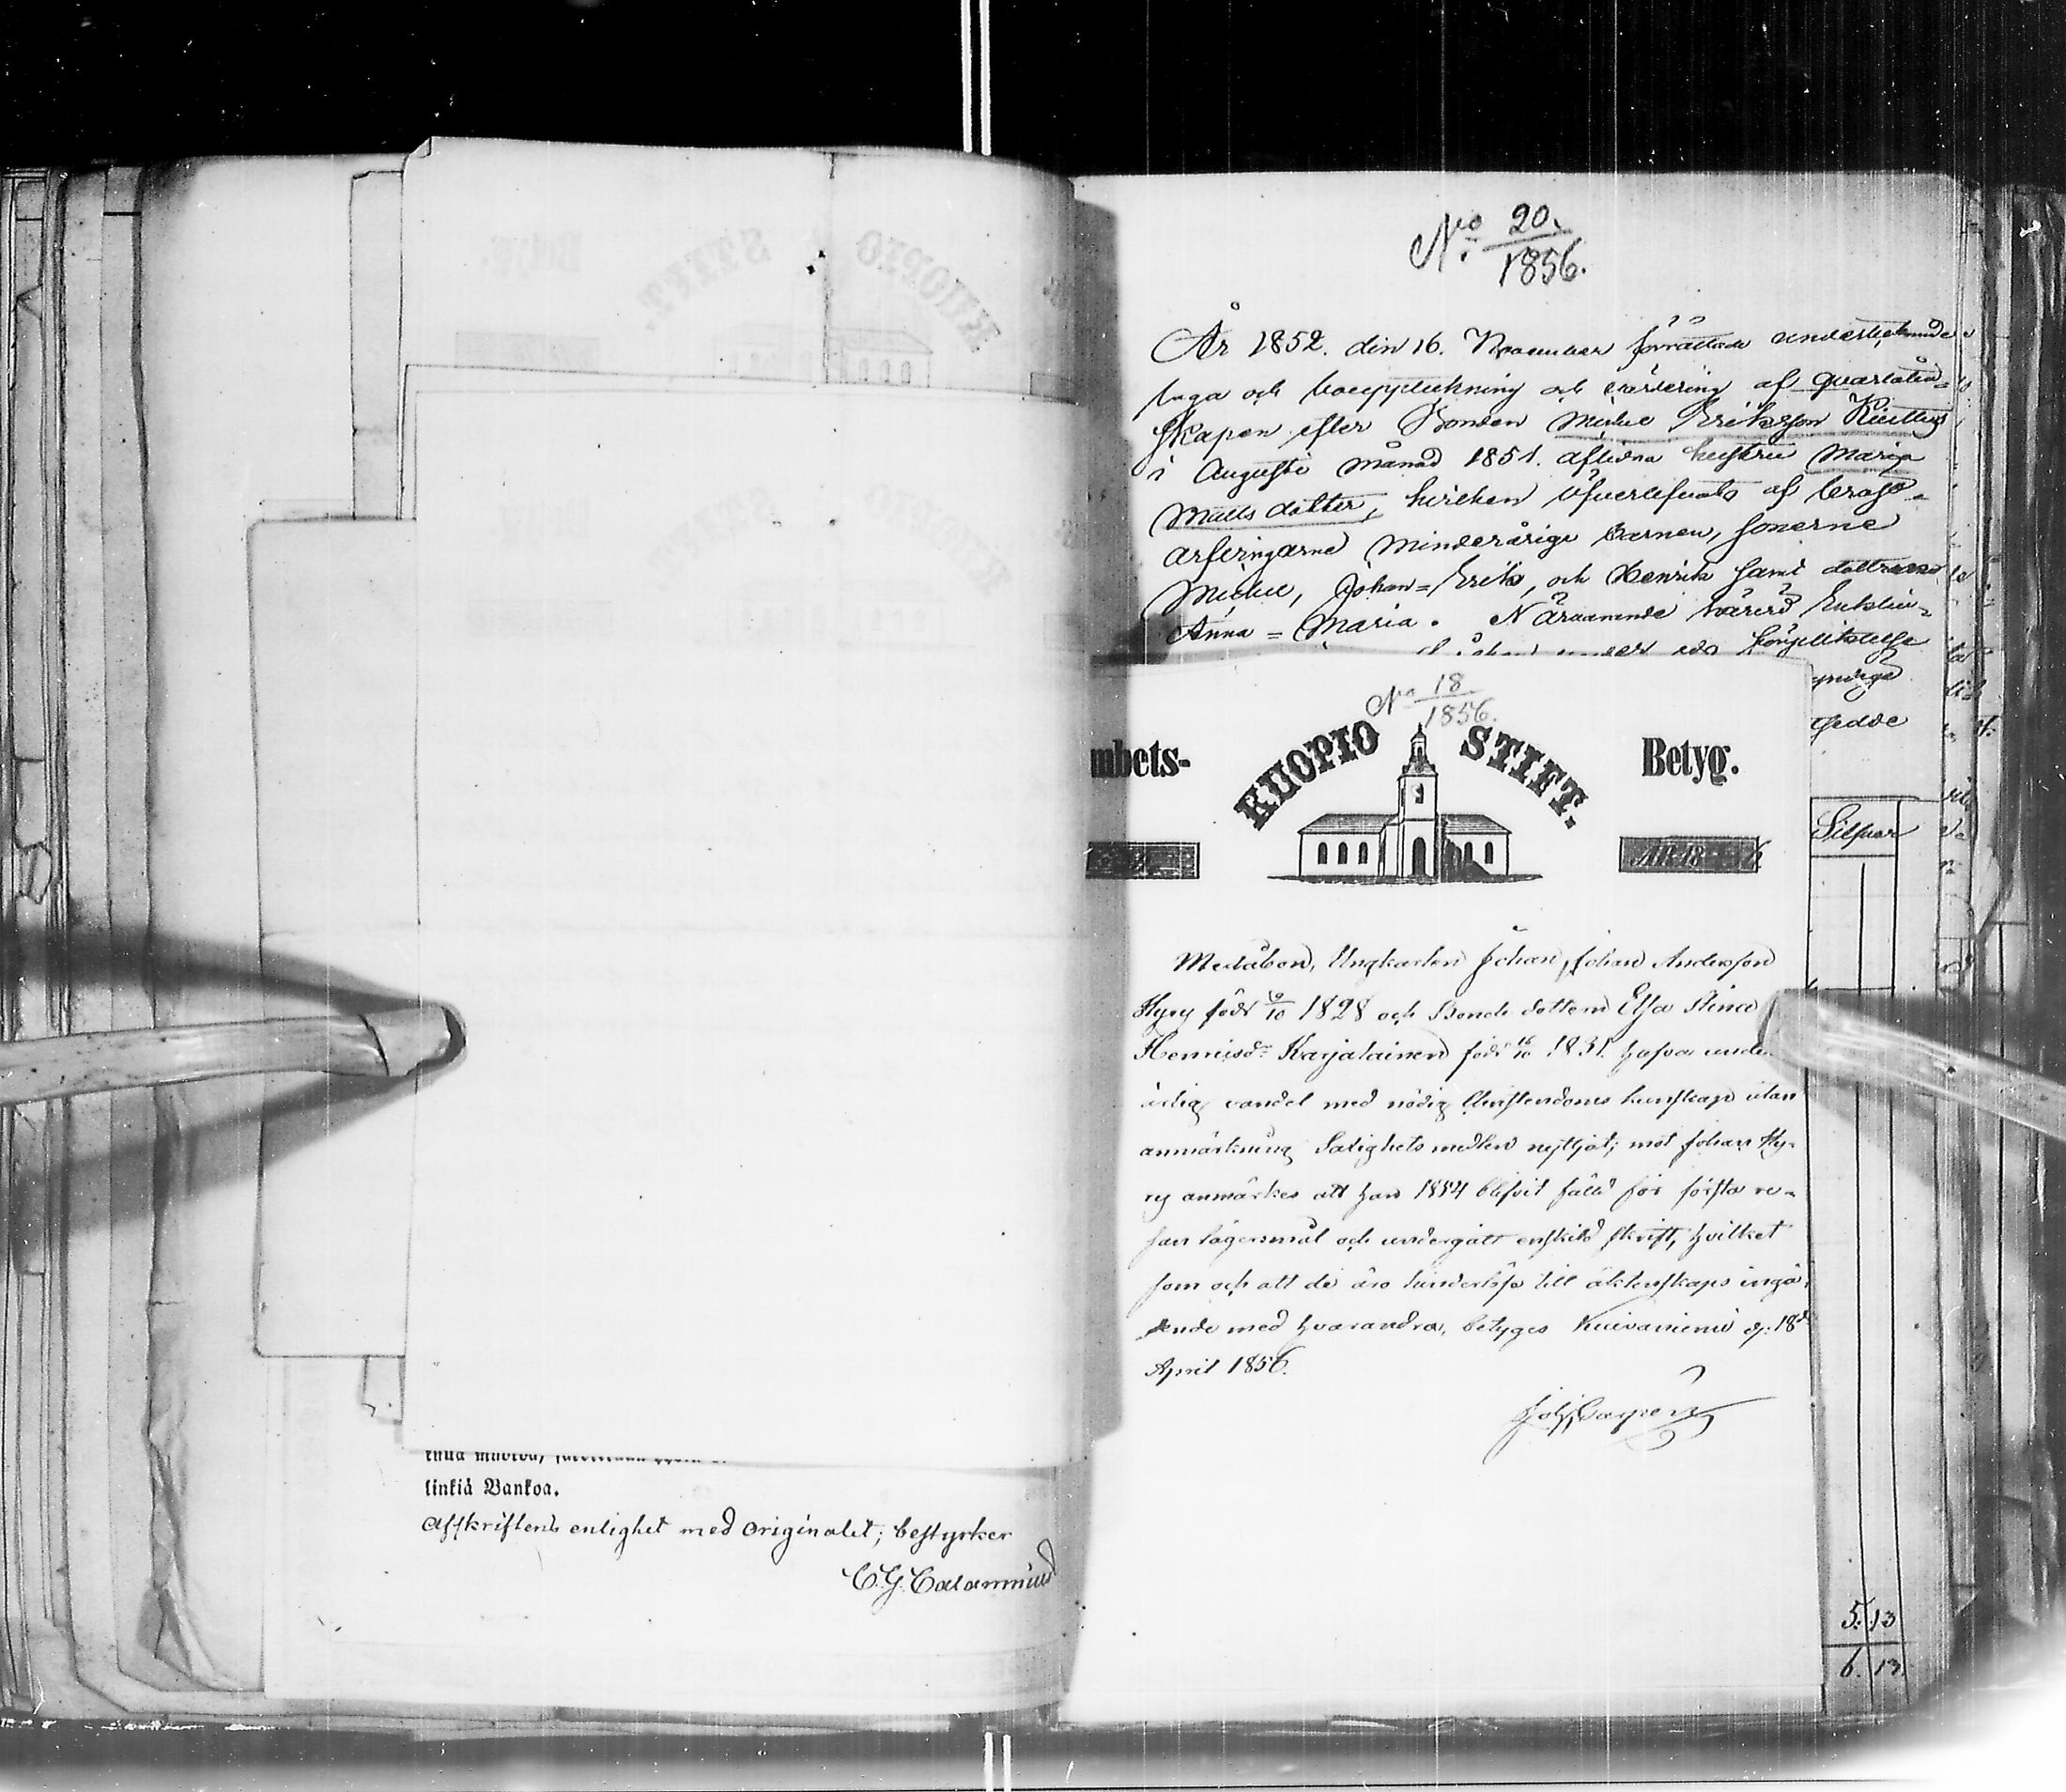 linkiä Bankoa.
Afskriftens enlighet med Originalet; bestyrker
C. G. Calamnius
No 20.
1856.
År 1852. den 16. November förrättade undertecknade
laga och bouppteckning och värdering af quarlåten-
skapen efter Bonden Michel Eriksson
i Augusti månad 1851. aflidna hustru Maria
Matts dotter, hvilken öfverlefvats af bröst-
arfvingarne minderåriga barnen, sönerne
Michel, Johan-Erik, och Henrik samt dottren
Anna-Maria. Närvarande
No 18
1856.
mbets-
KUOPIO STIFT.
Betyg.
ÅR 18 56
Silfver
Medåbon, Ungkarlen Johan Johan Andersson
Hyry född 9/10 1828 och Bonde dottern Elsa Stina
Henriksdr Karjalainen född 16/10 1831. hafva under
ärlig vandel med nödig Christendoms kunskap utan
anmärkning Salighets medlen nyttjat; mot Johan Hy-
ry anmärkes att han 1854 blifvit fälld för första re-
san lägersmål och undergått enskild skrift, hvilket
som och att de äro hinderlösa till äktenskaps ingå-
ende med hvarandra, betyges Kuivaniemi d. 18de
April 1856.
5. 13
6. 13